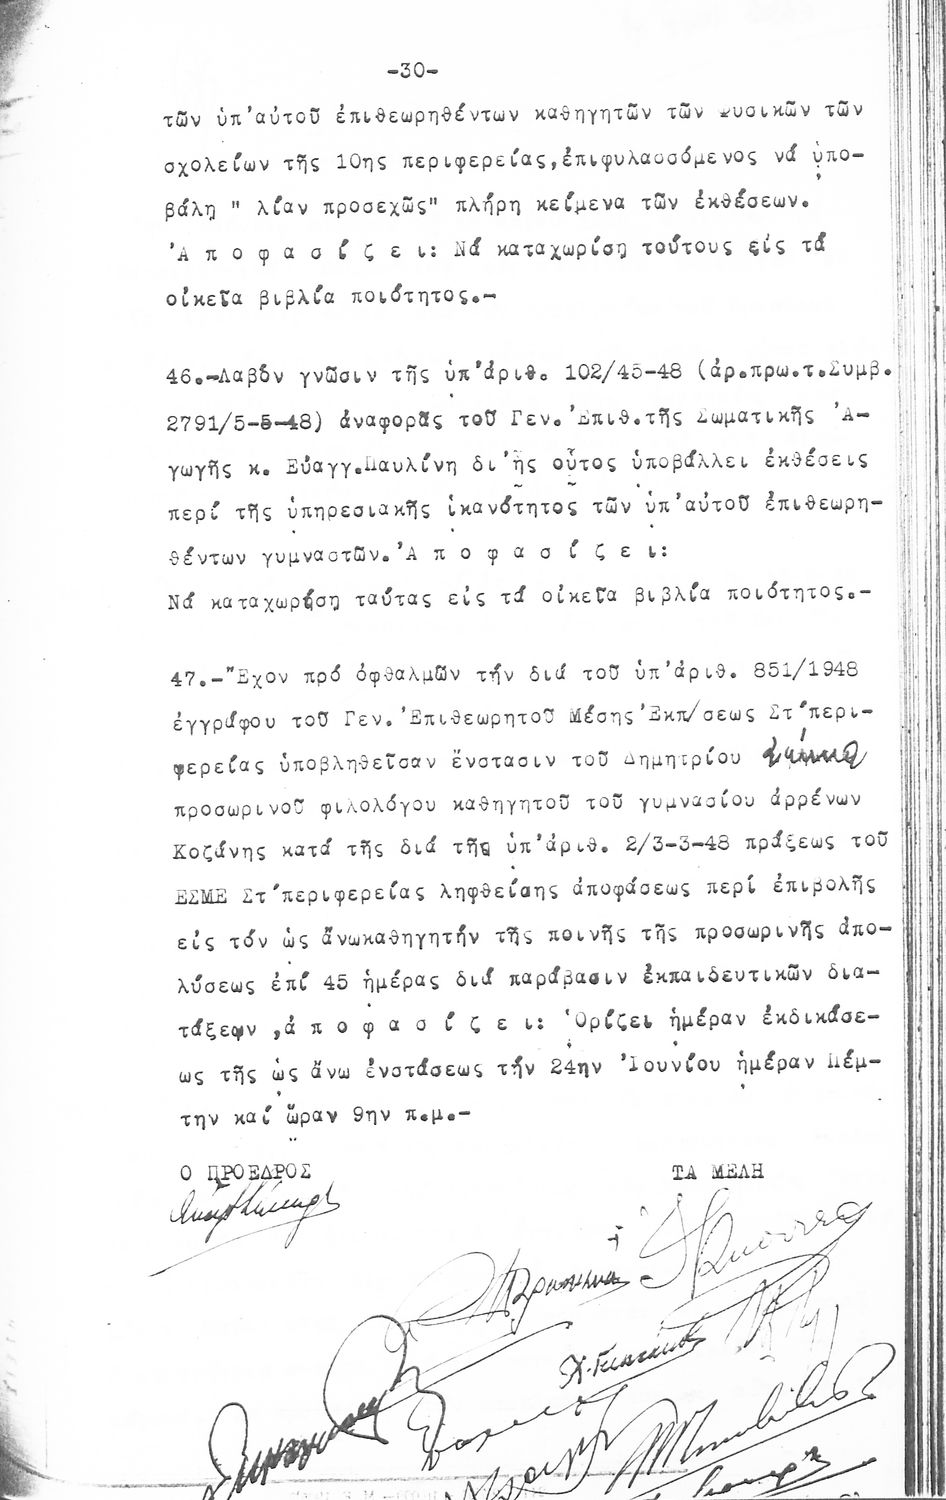 -30-
τῶν ὑπ'αὐτοῦ ἐπιθεωρηθέντων καθηγητῶν τῶν Φυσικῶν τῶν
σχολείων τῆς 10ης περιφερείας,ἐπιφυλασσόμενος νά ὑπο-
βάλῃ " λίαν προσεχῶς" πλήρη κείμενα τῶν ἐκθέσεων.
'Α π ο φ α σ ί ζ ε ι: Νά καταχωρίσῃ τούτους εἰς τά
οἰκεῖα βιβλία ποιότητος.-
46.-Λαβόν γνῶσιν τῆς ὑπ'ἀριθ. 102/45-48 (ἀρ.πρω.τ.Συμβ.
2791/5-5-48) ἀναφορᾶς τοῦ Γεν.'Επιθ.τῆς Σωματικῆς 'Α-
γωγῆς κ. Εὐαγγ.Παυλίνη δι'ἧς οὗτος ὑποβάλλει ἐκθέσεις
περί τῆς ὑπηρεσιακῆς ἱκανότητος τῶν ὑπ'αὐτοῦ ἐπιθεωρη-
θέντων γυμναστῶν.'Α π ο φ α σ ί ζ ε ι:
Νά καταχωρήσῃ ταύτας εἰς τά οἰκεῖα βιβλία ποιότητος.-
47.-"Εχον πρό ὀφθαλμῶν τήν διά τοῦ ὑπ'ἀριθ. 851/1948
ἐγγράφου τοῦ Γεν.'Επιθεωρητοῦ Μέσης 'Εκπ/σεως Στ'περι-
φερείας ὑποβληθεῖσαν ἔνστασιν τοῦ Δημητρίου
προσωρινοῦ φιλολόγου καθηγητοῦ τοῦ γυμνασίου ἀρρένων
Κοζάνης κατά τῆς διά τῆς ὑπ'ἀριθ. 2/3-3-48 πράξεως τοῦ
ΕΣΜΕ Στ'περιφερείας ληφθείσης ἀποφάσεως περί ἐπιβολῆς
εἰς τόν ὡς ἄνωκαθηγητήν τῆς ποινῆς τῆς προσωρινῆς ἀπο-
λύσεως ἐπί 45 ἡμέρας διά παράβασιν ἐκπαιδευτικῶν δια-
τάξεων ,ἀ π ο φ α σ ί ζ ε ι: 'Ορίζει ἡμέραν ἐκδικάσε-
ως τῆς ὡς ἄνω ἐνστάσεως τήν 24ην 'Ιουνίου ἡμέραν Πέμ-
την καί ὥραν 9ην π.μ.-
Ο ΠΡΟΕΔΡΟΣ ΤΑ ΜΕΛΗ